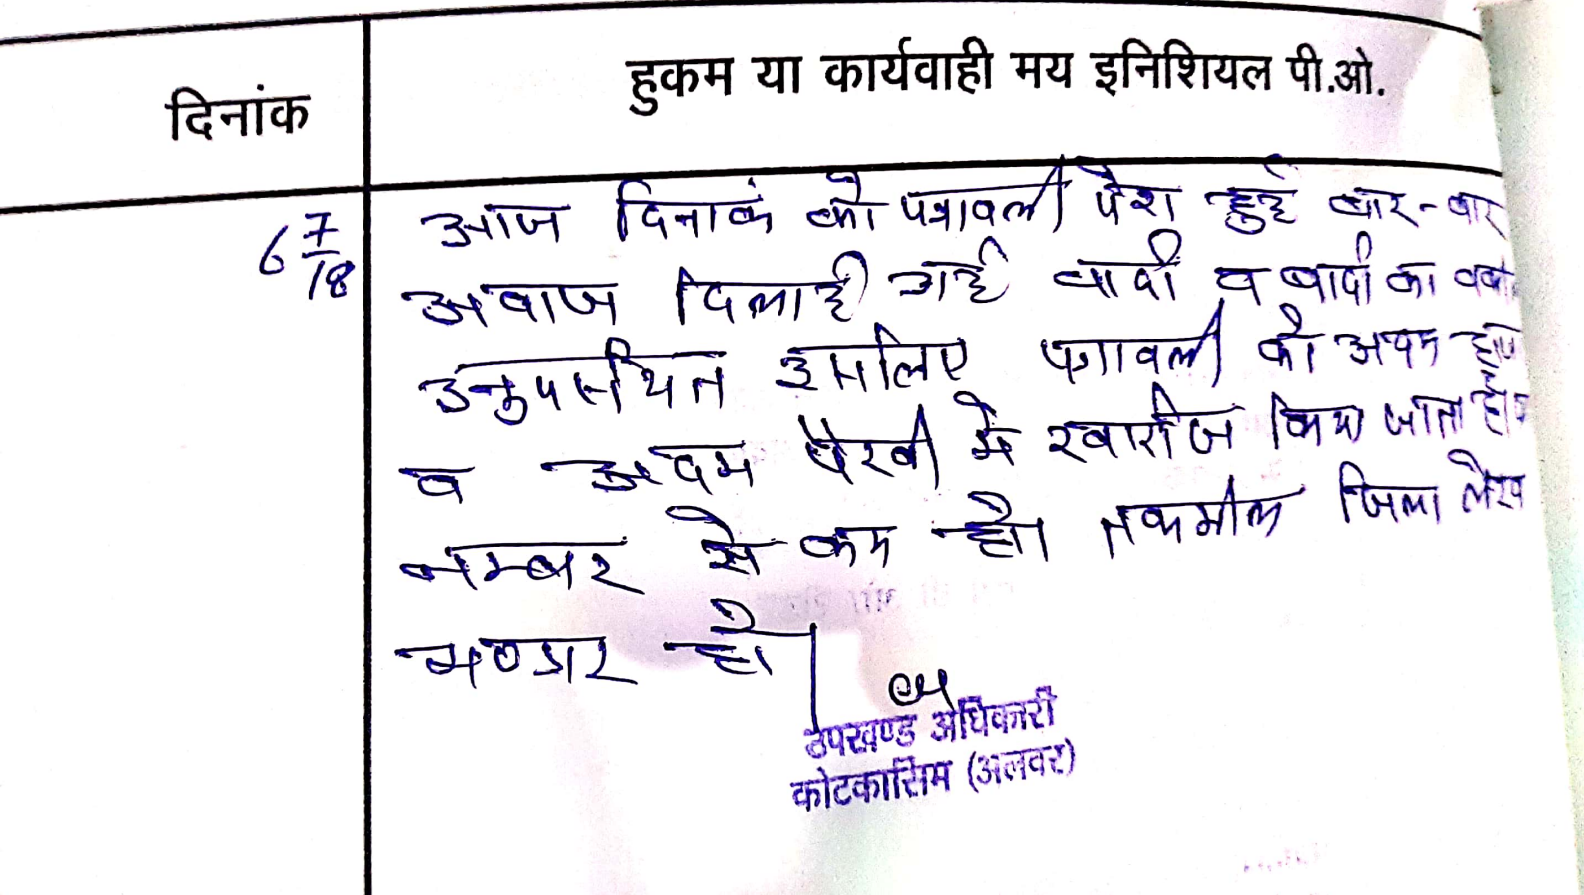 हुकम या कार्यवाही मय इनिशियल पी.ओ.
दिनांक
6 7/18
आज दिनाकं को पत्रावली पेश हुई बार-बार
अवाज दिलाई गई वादी व वादी का
अनुपस्थित इसलिए पत्रावली को अदम
व अदम पैरवी में खारीज किया जाता है
नम्बर से कम हो। तकमील जिला लेख
भण्डार हो।
उपखण्ड अधिकारी
कोटकासिम (अलवर)